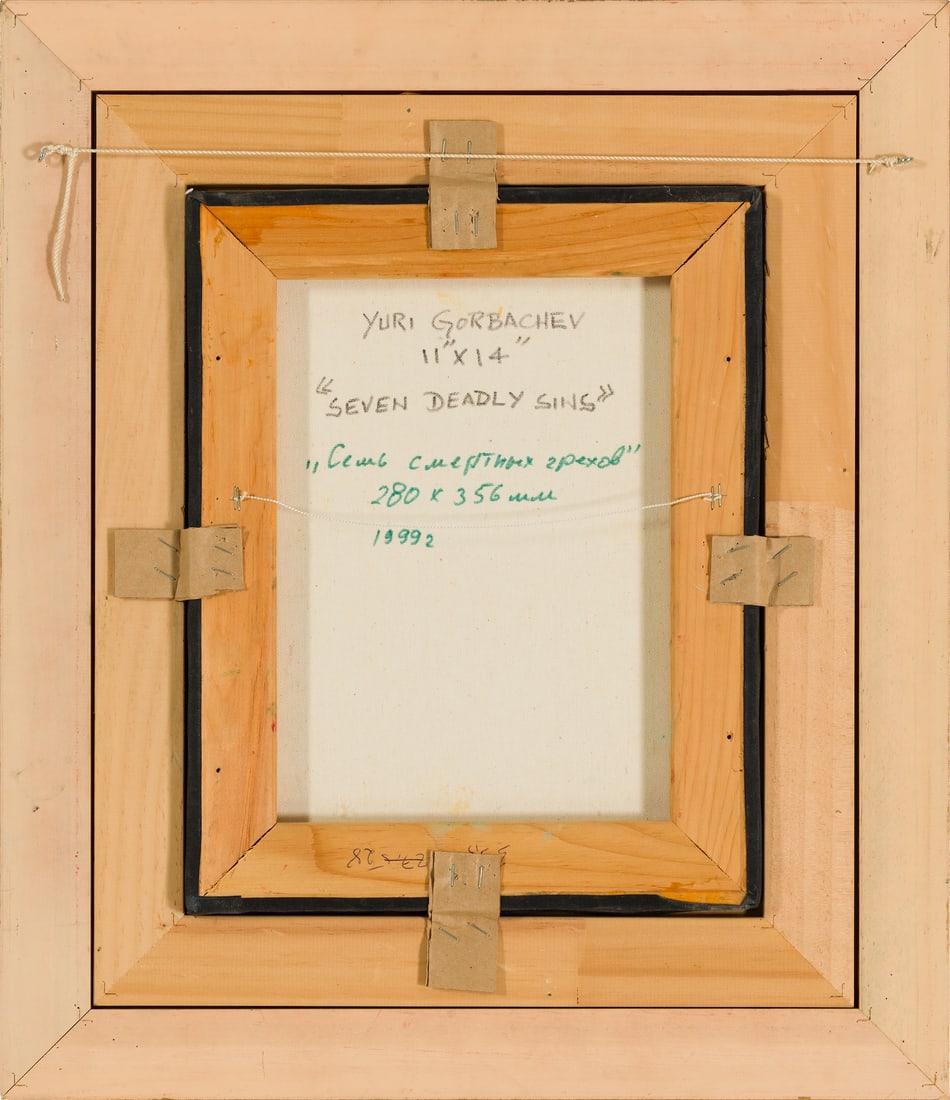 YURI GORBACHEV
11" x 14"
«SEVEN DEADLY SINS»
„Семь смертных грехов"
280 x 356 мм
1999г